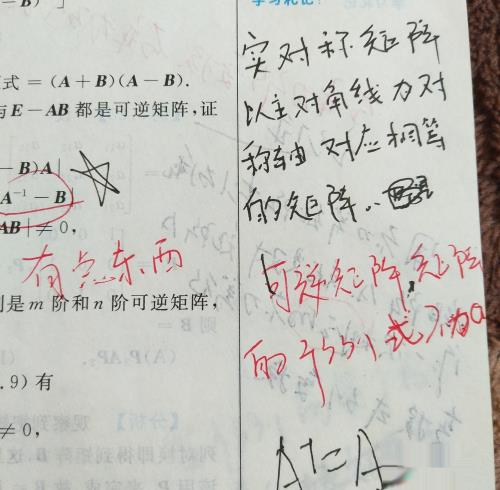 学习札记:
式 = (A + B)(A − B).
与 E − AB 都是可逆矩阵，证
− B)A|
A⁻¹ − B|
AB| ≠ 0,
有点东西
别是 m 阶和 n 阶可逆矩阵，
.9) 有
≠ 0,
实对称矩阵
以主对角线为对
称轴 对应相等
的矩阵
可逆矩阵,矩阵
的行列式不为0
Aᵀ = A